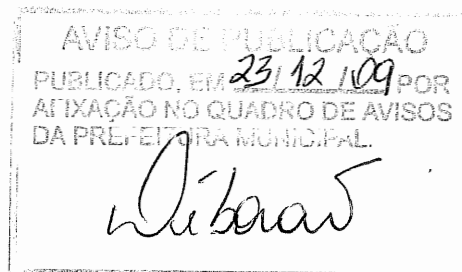 AVISO DE PUBLICAÇÃO
PUBLICADO, EM 23/12/09 POR
AFIXAÇÃO NO QUADRO DE AVISOS
DA PREFEITURA MUNICIPAL.